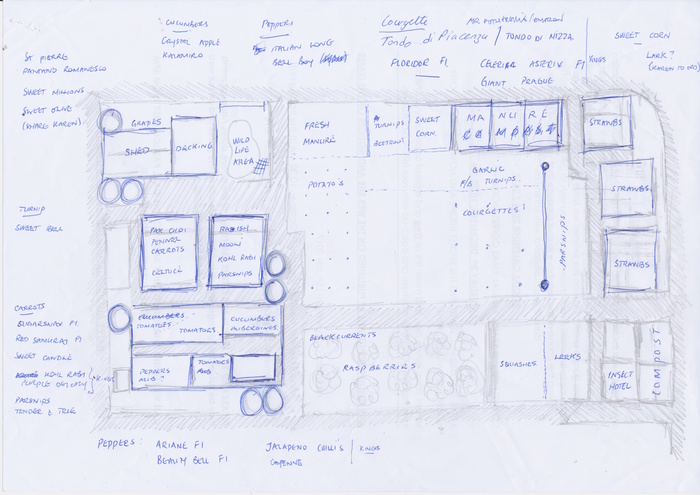 CUCUMBERS
CRYSTAL APPLE
KALAMIRO
PEPPERS
ITALIAN LONG
BELL BOY
Courgette
Tondo di Piacenza / TONDO DI NIZZA
FLORIDOR F1
CELERIAC ASTERIX F1
GIANT PRAGUE
KINGS
SWEET CORN
LARK?
(KAREN TO DO)
ST PIERRE
PANTANO ROMANESCO
SWEET MILLIONS
SWEET OLIVE
(SHARE KAREN)
TURNIP
SWEET BELL
CARROTS
SUGARSNAX F1
RED SAMURAI F1
SWEET CANDLE
KOHL RABI
PURPLE DELICACY
KINGS
PARSNIPS
TENDER & TRUE
GRAPES
SHED
DECKING
WILD
LIFE
AREA
FRESH
MANURE
TURNIPS
BEETROOT
SWEET
CORN
MA NU RE
STRAWBS
STRAWBS
STRAWBS
POTATO'S
GARLIC
F/B TURNIPS.
COURGETTES
PARSNIPS
PAK CHOI
FENNEL
CARROTS
CELTUCE
RADISH
MOOLI
KOHL RABI
PARSNIPS
CUCUMBERS
TOMATOES
TOMATOES
CUCUMBERS
AUBERGINES
PEPPERS
AUB?
TOMATOES
AUB
BLACKCURRENTS
RASPBERRIES
SQUASHES
LEEKS
INSECT
HOTEL
COMPOST
PEPPERS:
ARIANE F1
BEAUTY BELL F1
JALAPENO CHILLI'S
CAYENNE
KINGS